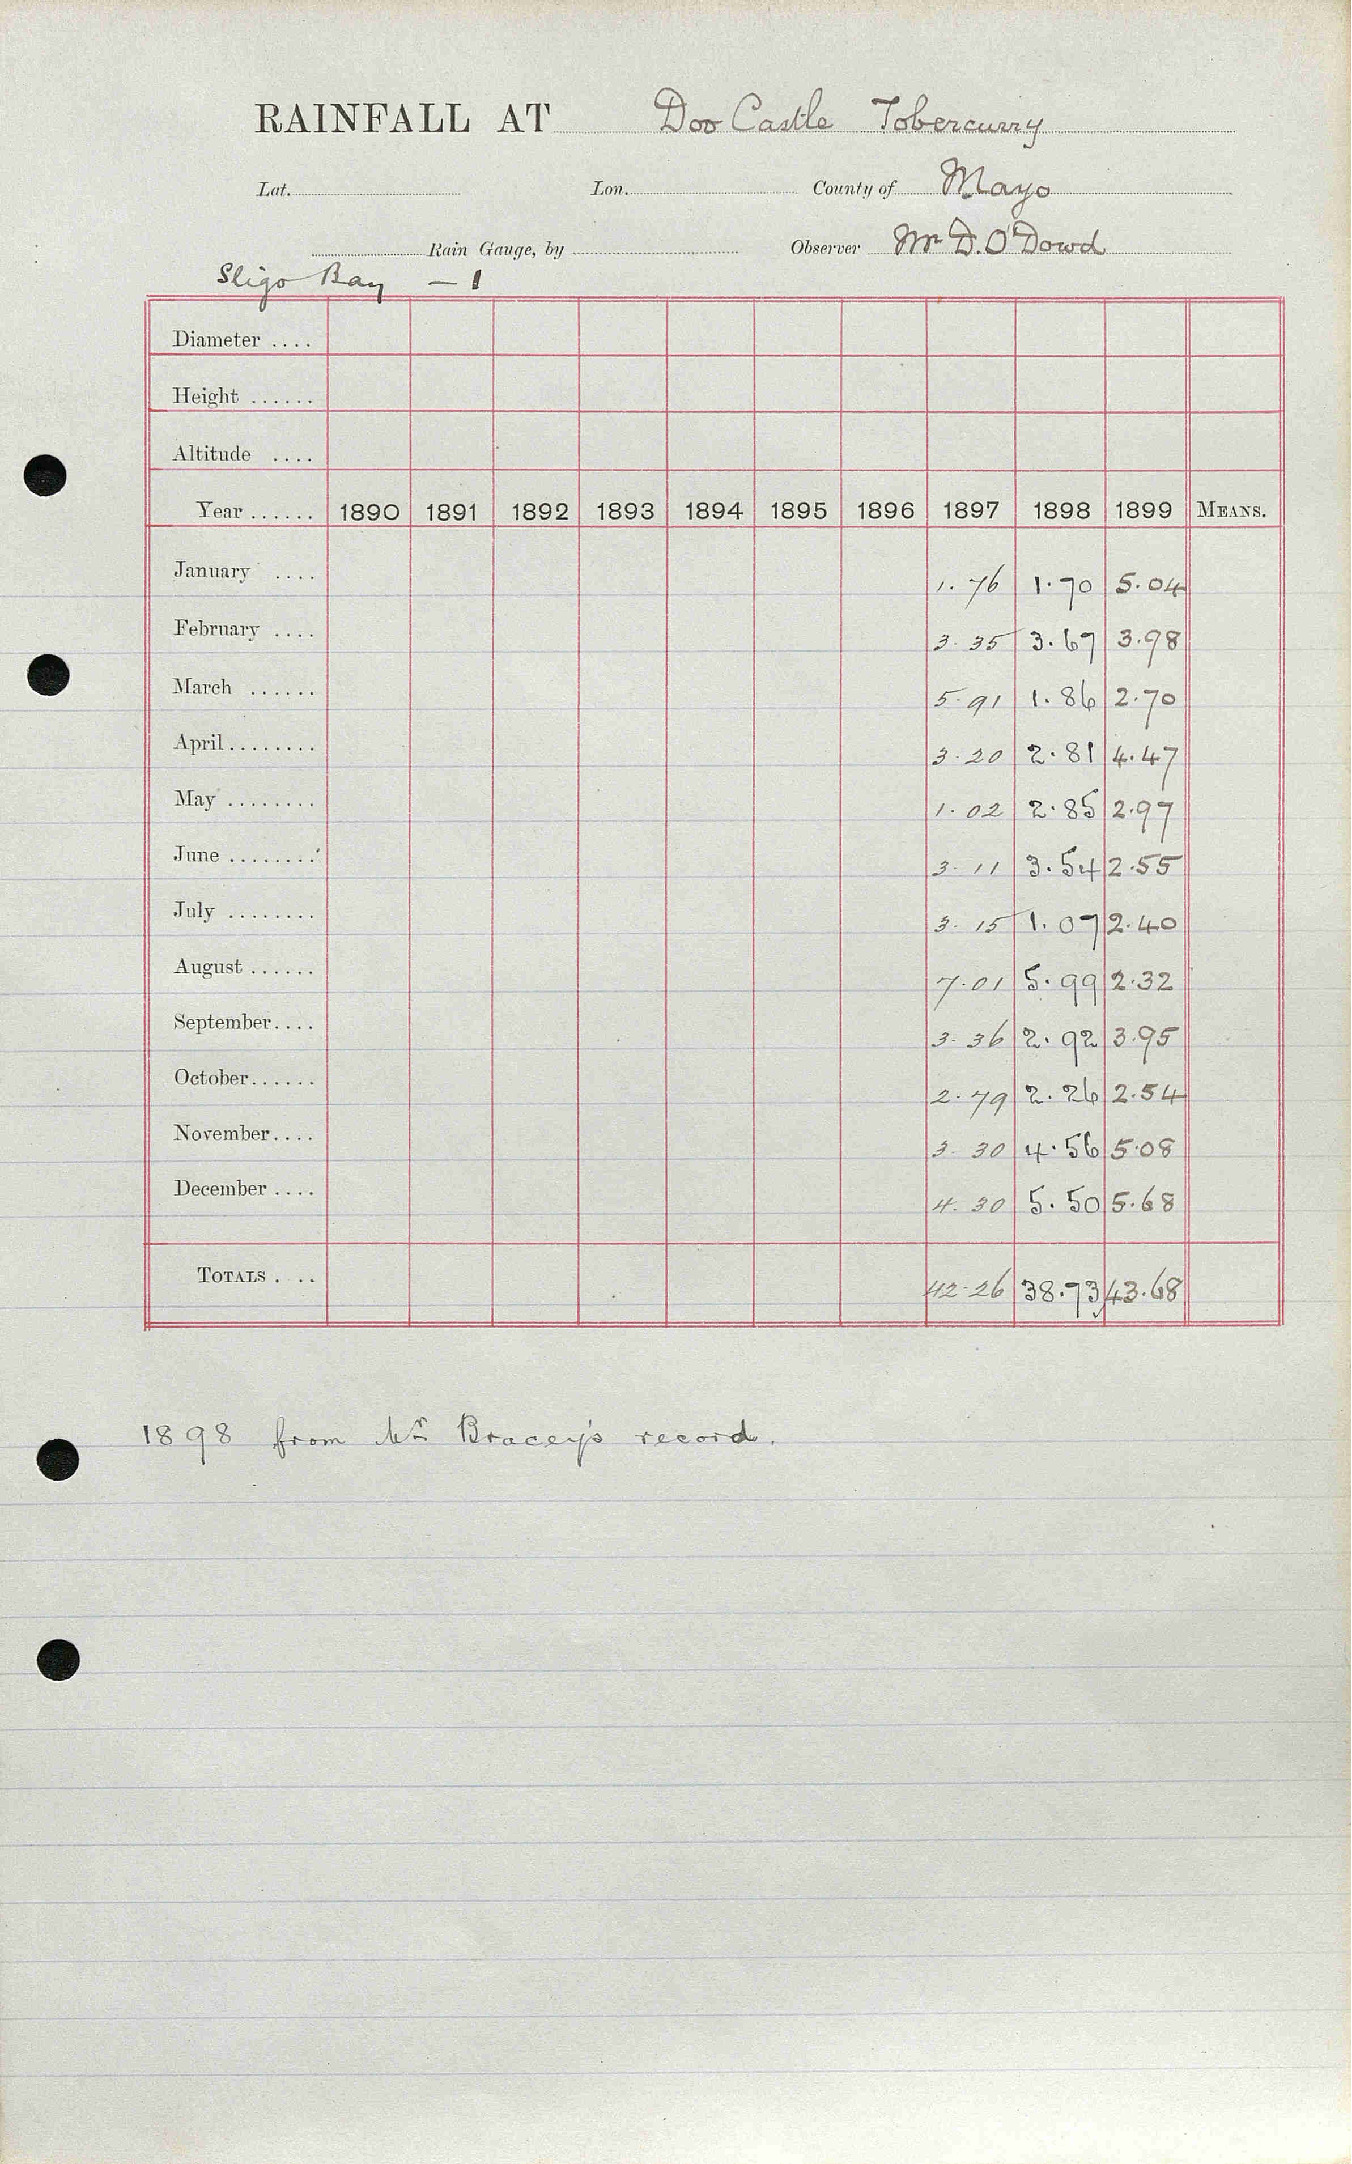 RAINFALL AT Doo Castle Tobercurry
Lat. Lon. County of Mayo
Rain Gauge, by Observer Mr D. O'Dowd
Sligo Bay – 1
Diameter ....
Height ......
Altitude ....
Year ...... 1890 1891 1892 1893 1894 1895 1896 1897 1898 1899 MEANS.
January .... 1.76 1.70 5.04
February .... 3.35 3.67 3.98
March ...... 5.91 1.86 2.70
April ........ 3.20 2.81 4.47
May ........ 1.02 2.85 2.97
June ........ 3.11 3.54 2.55
July ........ 3.15 1.07 2.40
August ...... 7.01 5.99 2.32
September.... 3.36 2.92 3.95
October...... 2.79 2.26 2.54
November.... 3.30 4.56 5.08
December .... 4.30 5.50 5.68
TOTALS . .. 42.26 38.73 43.68
1898 from Mr Bracey's record.